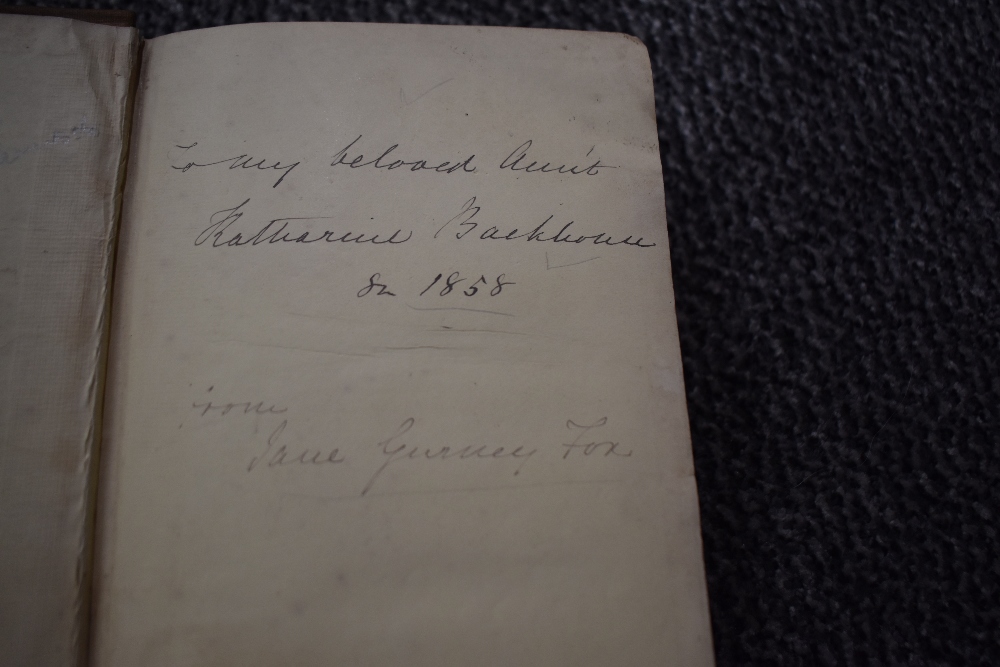 To my beloved Aunt
Katharine Backhouse
In 1858
from
Jane Gurney Fox